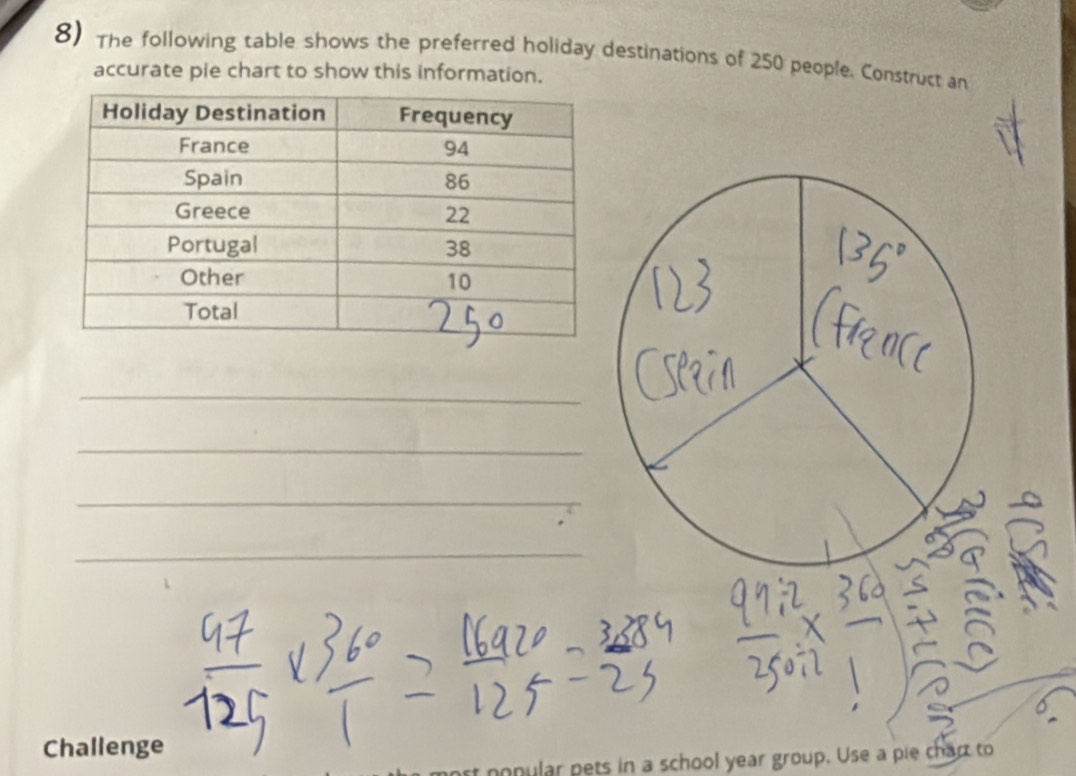 8) The following table shows the preferred holiday destinations of 250 people. Construct an
accurate pie chart to show this information.
Holiday Destination Frequency
France 94
Spain 86
Greece 22
Portugal 38
Other 10
Total 250
135°
(France
123
(Spain
(Greece)
54.72 (Port
94÷2 × 360
250÷2 1
47 × 360 = 16920 = 3384
125 1 125 25
Challenge
most popular pets in a school year group. Use a pie chart to